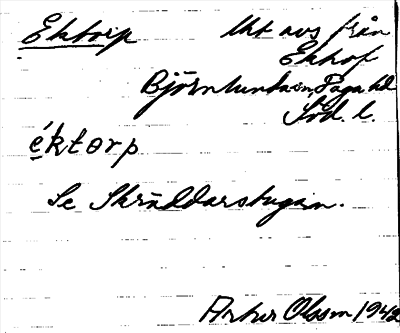 Ektorp lht avs från
Ekhof
Björnlunda sn, Daga hd
Söd. l.
éktorp
Se Skräddarstugan.
Arthur Olsson 1942